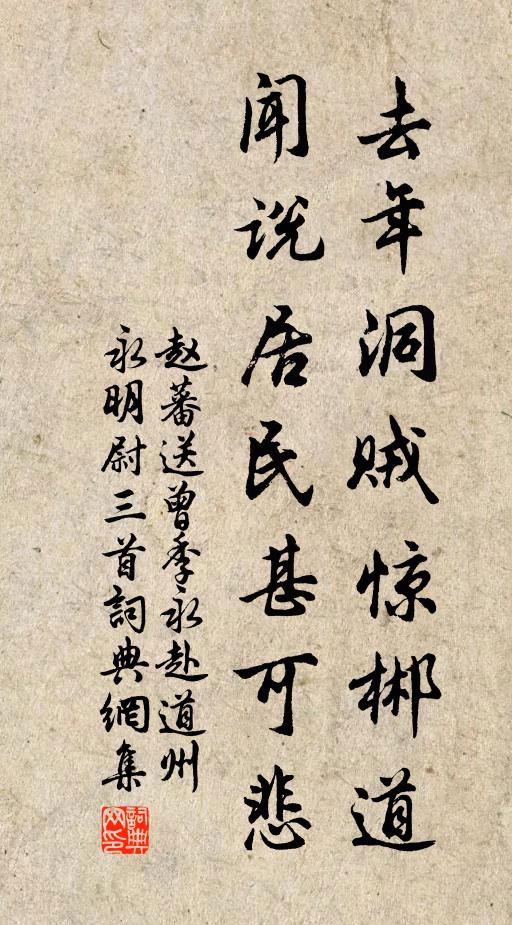 去年洞贼惊郴道
闻说居民甚可悲
赵蕃送曾季永赴道州
永明尉三首詞典網集
詞典
网印